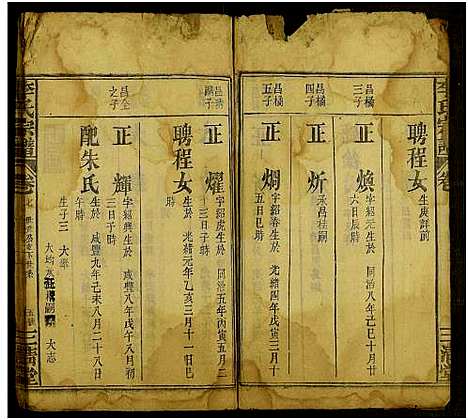 聘程女
生庚詳前
正煥
字紹元生於同治八年己巳十月
六日辰時
昌橘
四子
正炘
承昌桂嗣
昌橘
五子
正焵
字紹春生於光緒元年乙亥三月
五日巳時
昌
子
正燿
字紹虎生於同治五年丙寅五月二
十三日子時
聘程女
生於光緒元年乙亥三月十一日巳
時
昌全
之子
正輝
字紹興生於咸豐八年戊午八月初
三日子時
配朱氏
生於咸豐九年己未八月二十八日
午時
生子三
大率
大均
大志
李氏宗譜
卷
三
堂